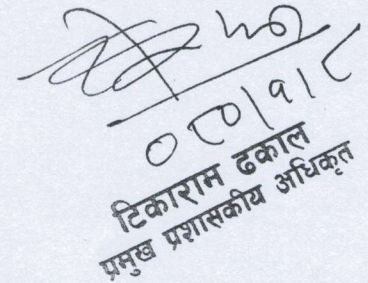 ०८०/१/८
टिकाराम ढकाल
प्रमुख प्रशासकीय अधिकृत